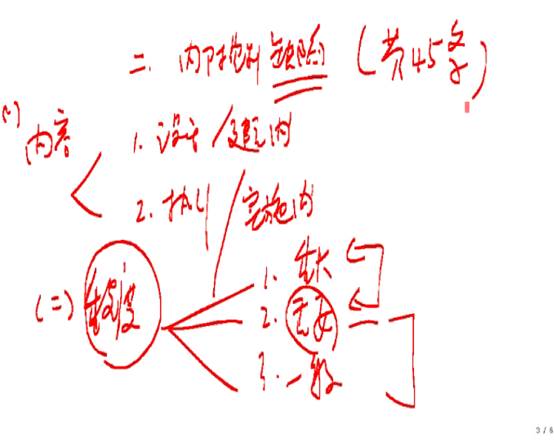 二、内部控制缺陷（共45条）
(一) 内容
1. 设计 / 建立的
2. 执行 / 实施的
(二) 程度
1. 重大
2. 重要
3. 一般
3 / 6